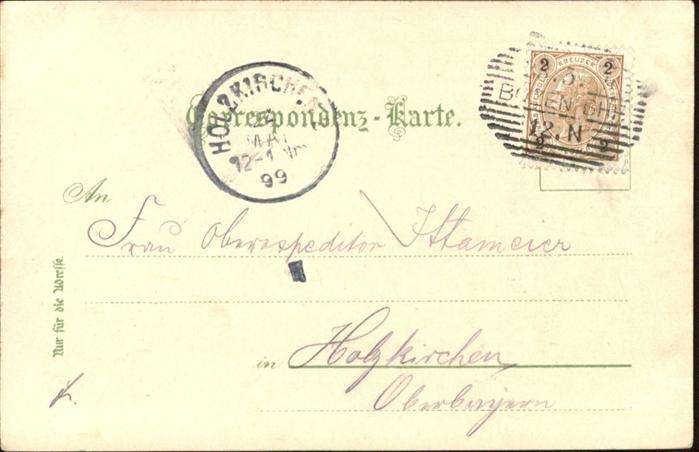 2 KREUZER 2
12. N
2 2
HOLZKIRCHEN
MAI
12-1 Nm
99
Correspondenz-Karte.
An
Frau Oberexpeditor
in Holzkirchen
Oberbayern
Nur für die Adresse.